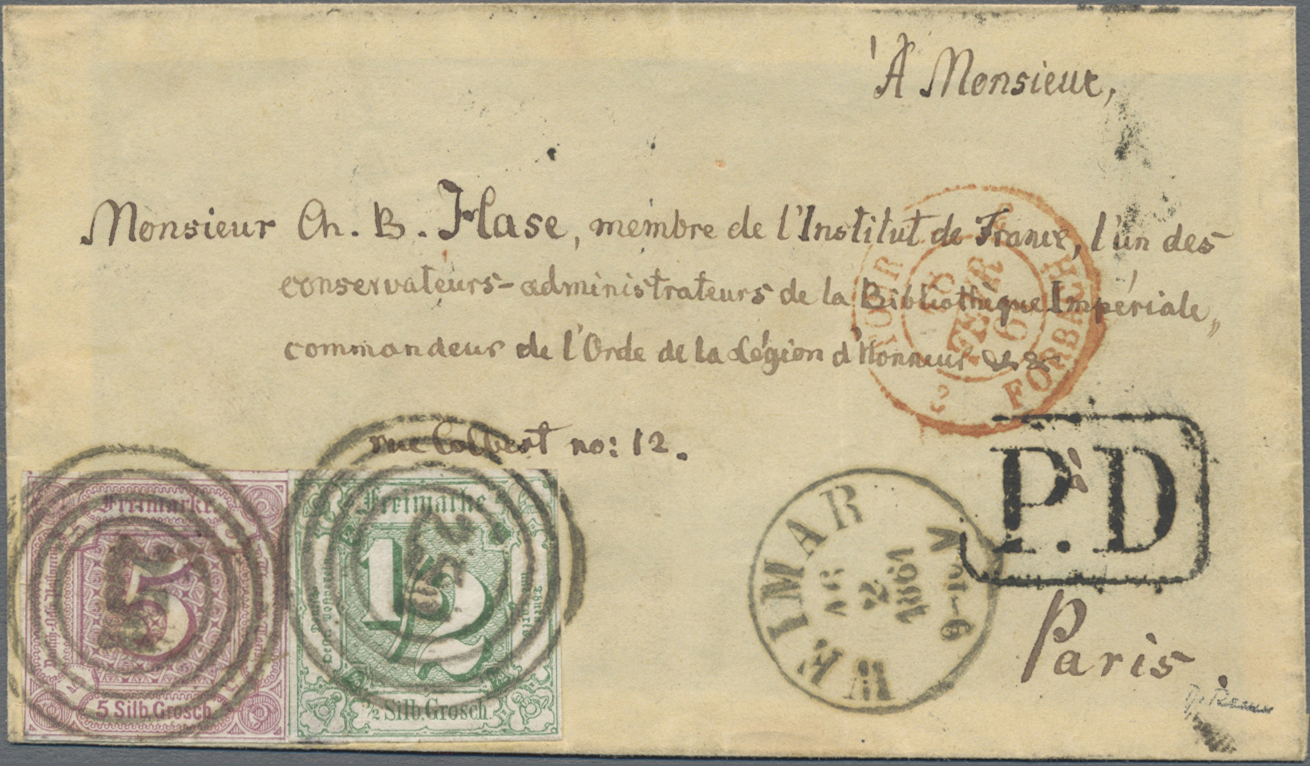 À Monsieur,
Monsieur Ch. B. Hase, membre de l'Institut de France, l'un des
conservateurs-administrateurs de la Bibliothèque Impériale,
commandeur de l'Orde de la Légion d'Honneur &&
rue Colbert no: 12.
2 FORBACH
FEVR
P.D
WEIMAR
2
1861
Paris
Freimarke
5
5 Silb. Grosch.
Freimarke
1/2
1/2 Silb. Grosch.